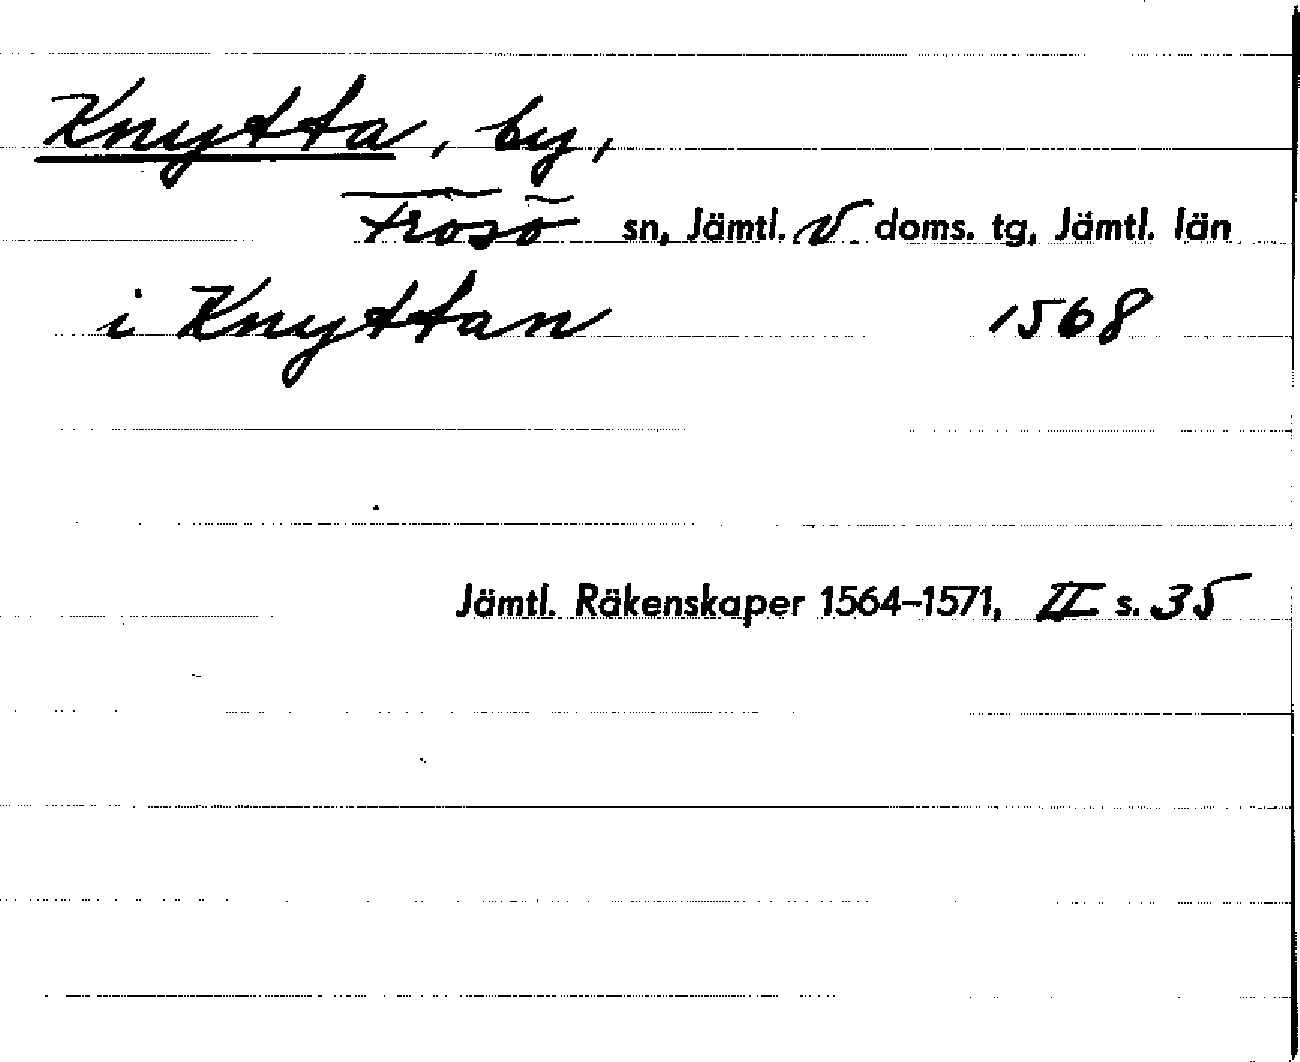 Knytta, by,
Frösö sn, Jämtl. V. doms. tg, Jämtl. län
i Knyttan 1568
Jämtl. Räkenskaper 1564–1571, II s. 35